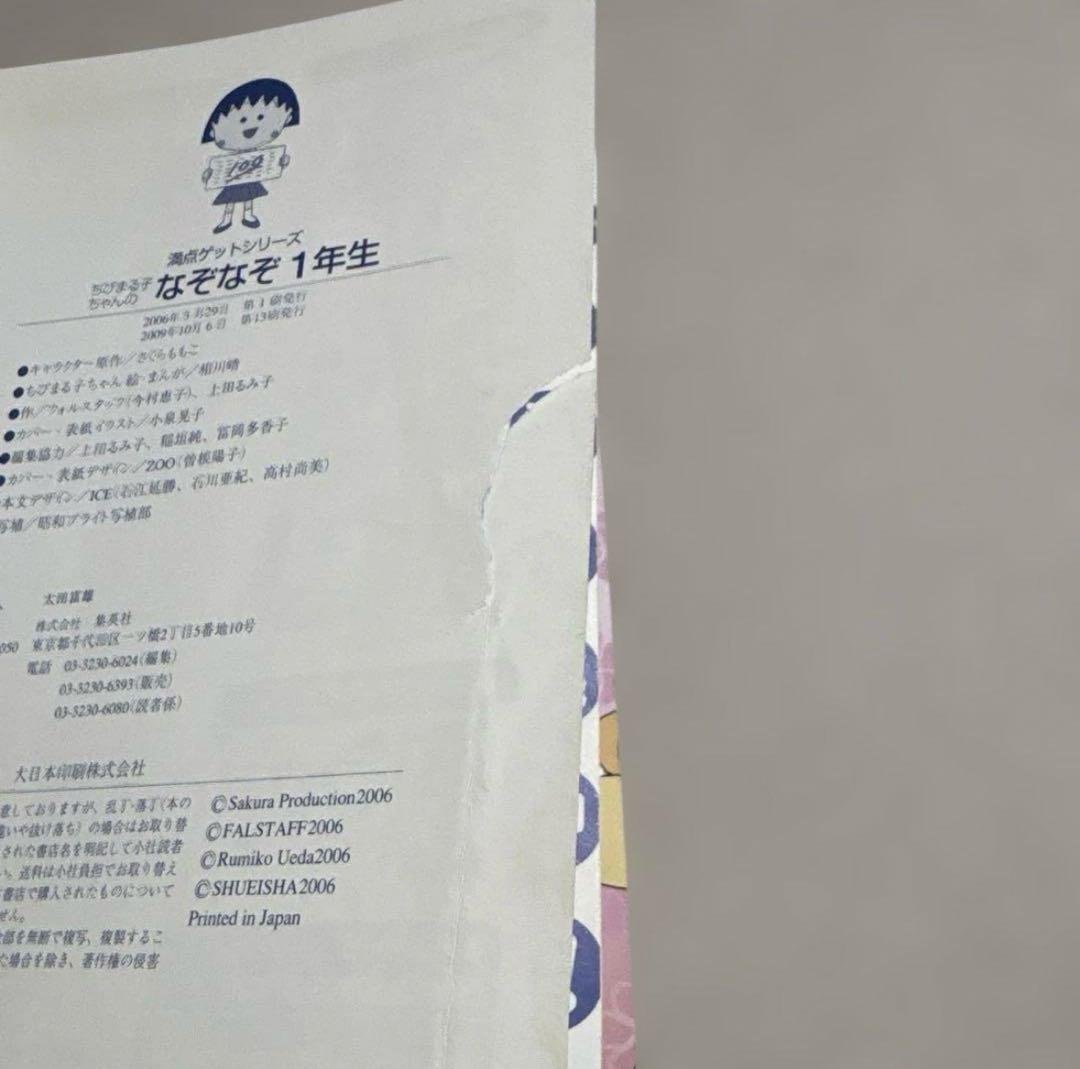 100
満点ゲットシリーズ
ちびまる子ちゃんの なぞなぞ1年生
2006年3月29日 第1刷発行
2009年10月6日 第13刷発行
●キャラクター原作/さくらももこ
●ちびまる子ちゃん絵・まんが/相川晴
●作/フォルスタッフ(今村恵子)、上田るみ子
●カバー・表紙イラスト/小泉晃子
●編集協力/上田るみ子、稲垣純、富岡多香子
●カバー・表紙デザイン/ZOO(曽根陽子)
本文デザイン/ICE(石江延勝、石川亜紀、高村尚美)
写植/昭和ブライト写植部
太田富雄
株式会社 集英社
050 東京都千代田区一ツ橋2丁目5番地10号
電話 03-3230-6024(編集)
03-3230-6393(販売)
03-3230-6080(読者係)
大日本印刷株式会社
意しておりますが、乱丁・落丁(本の
違いや抜け落ち)の場合はお取り替
された書店名を明記して小社読者
い。送料は小社負担でお取り替え
書店で購入されたものについて
せん。
全部を無断で複写、複製するこ
た場合を除き、著作権の侵害
©Sakura Production2006
©FALSTAFF2006
©Rumiko Ueda2006
©SHUEISHA2006
Printed in Japan